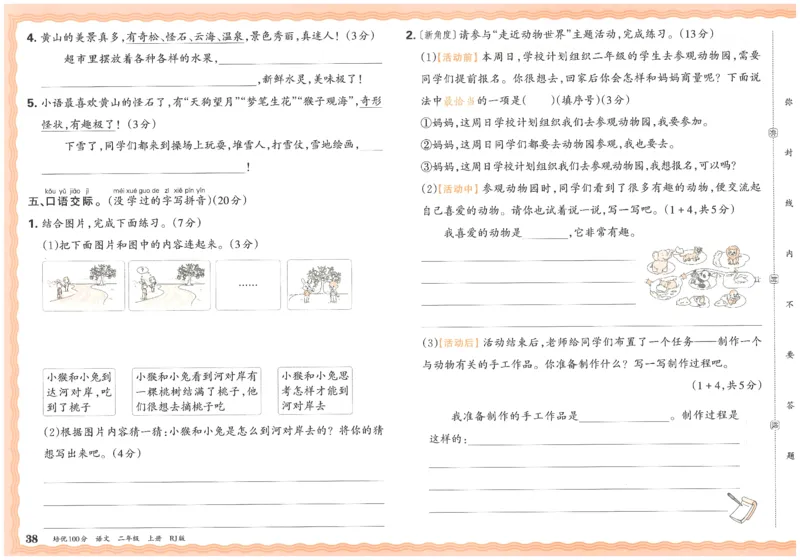 4. 黄山的美景真多,有奇松、怪石、云海、温泉,景色秀丽,真迷人!(3分)
超市里摆放着各种各样的水果,
,新鲜水灵,美味极了!
5. 小语最喜欢黄山的怪石了,有“天狗望月”“梦笔生花”“猴子观海”,奇形
怪状,有趣极了!(3分)
下雪了,同学们都来到操场上玩耍,堆雪人,打雪仗,雪地绘画,
!
kǒu yǔ jiāo jì méi xué guo de zì xiě pīn yīn
五、口语交际。(没学过的字写拼音)(20分)
1. 结合图片,完成下面练习。(7分)
(1)把下面图片和图中的内容连起来。(3分)
……
小猴和小兔到
达河对岸,吃
到了桃子
小猴和小兔看到河对岸有
一棵桃树结满了桃子,他
们很想去摘桃子吃
小猴和小兔思
考怎样才能到
河对岸去
(2)根据图片内容猜一猜:小猴和小兔是怎么到河对岸去的?将你的猜
想写出来吧。(4分)
38 培优100分 语文 二年级 上册 RJ版
2. [新角度]请参与“走近动物世界”主题活动,完成练习。(13分)
(1)【活动前】本周日,学校计划组织二年级的学生去参观动物园,需要
同学们提前报名。你很想去,回家后你会怎样和妈妈商量呢?下面说
法中最恰当的一项是( )(填序号)(3分)
①妈妈,这周日学校计划组织我们去参观动物园,我要参加。
②妈妈,这周日同学们都要去动物园参观,我也要去。
③妈妈,这周日学校计划组织我们去参观动物园,我想报名,可以吗?
(2)【活动中】参观动物园时,同学们看到了很多有趣的动物,便交流起
自己喜爱的动物。请你也试着说一说,写一写吧。(1+4,共5分)
我喜爱的动物是 ,它非常有趣。
(3)【活动后】活动结束后,老师给同学们布置了一个任务——制作一个
与动物有关的手工作品。你准备制作什么?写一写制作过程吧。
(1+4,共5分)
我准备制作的手工作品是 。制作过程是
这样的:
弥
封
线
内
不
要
答
题